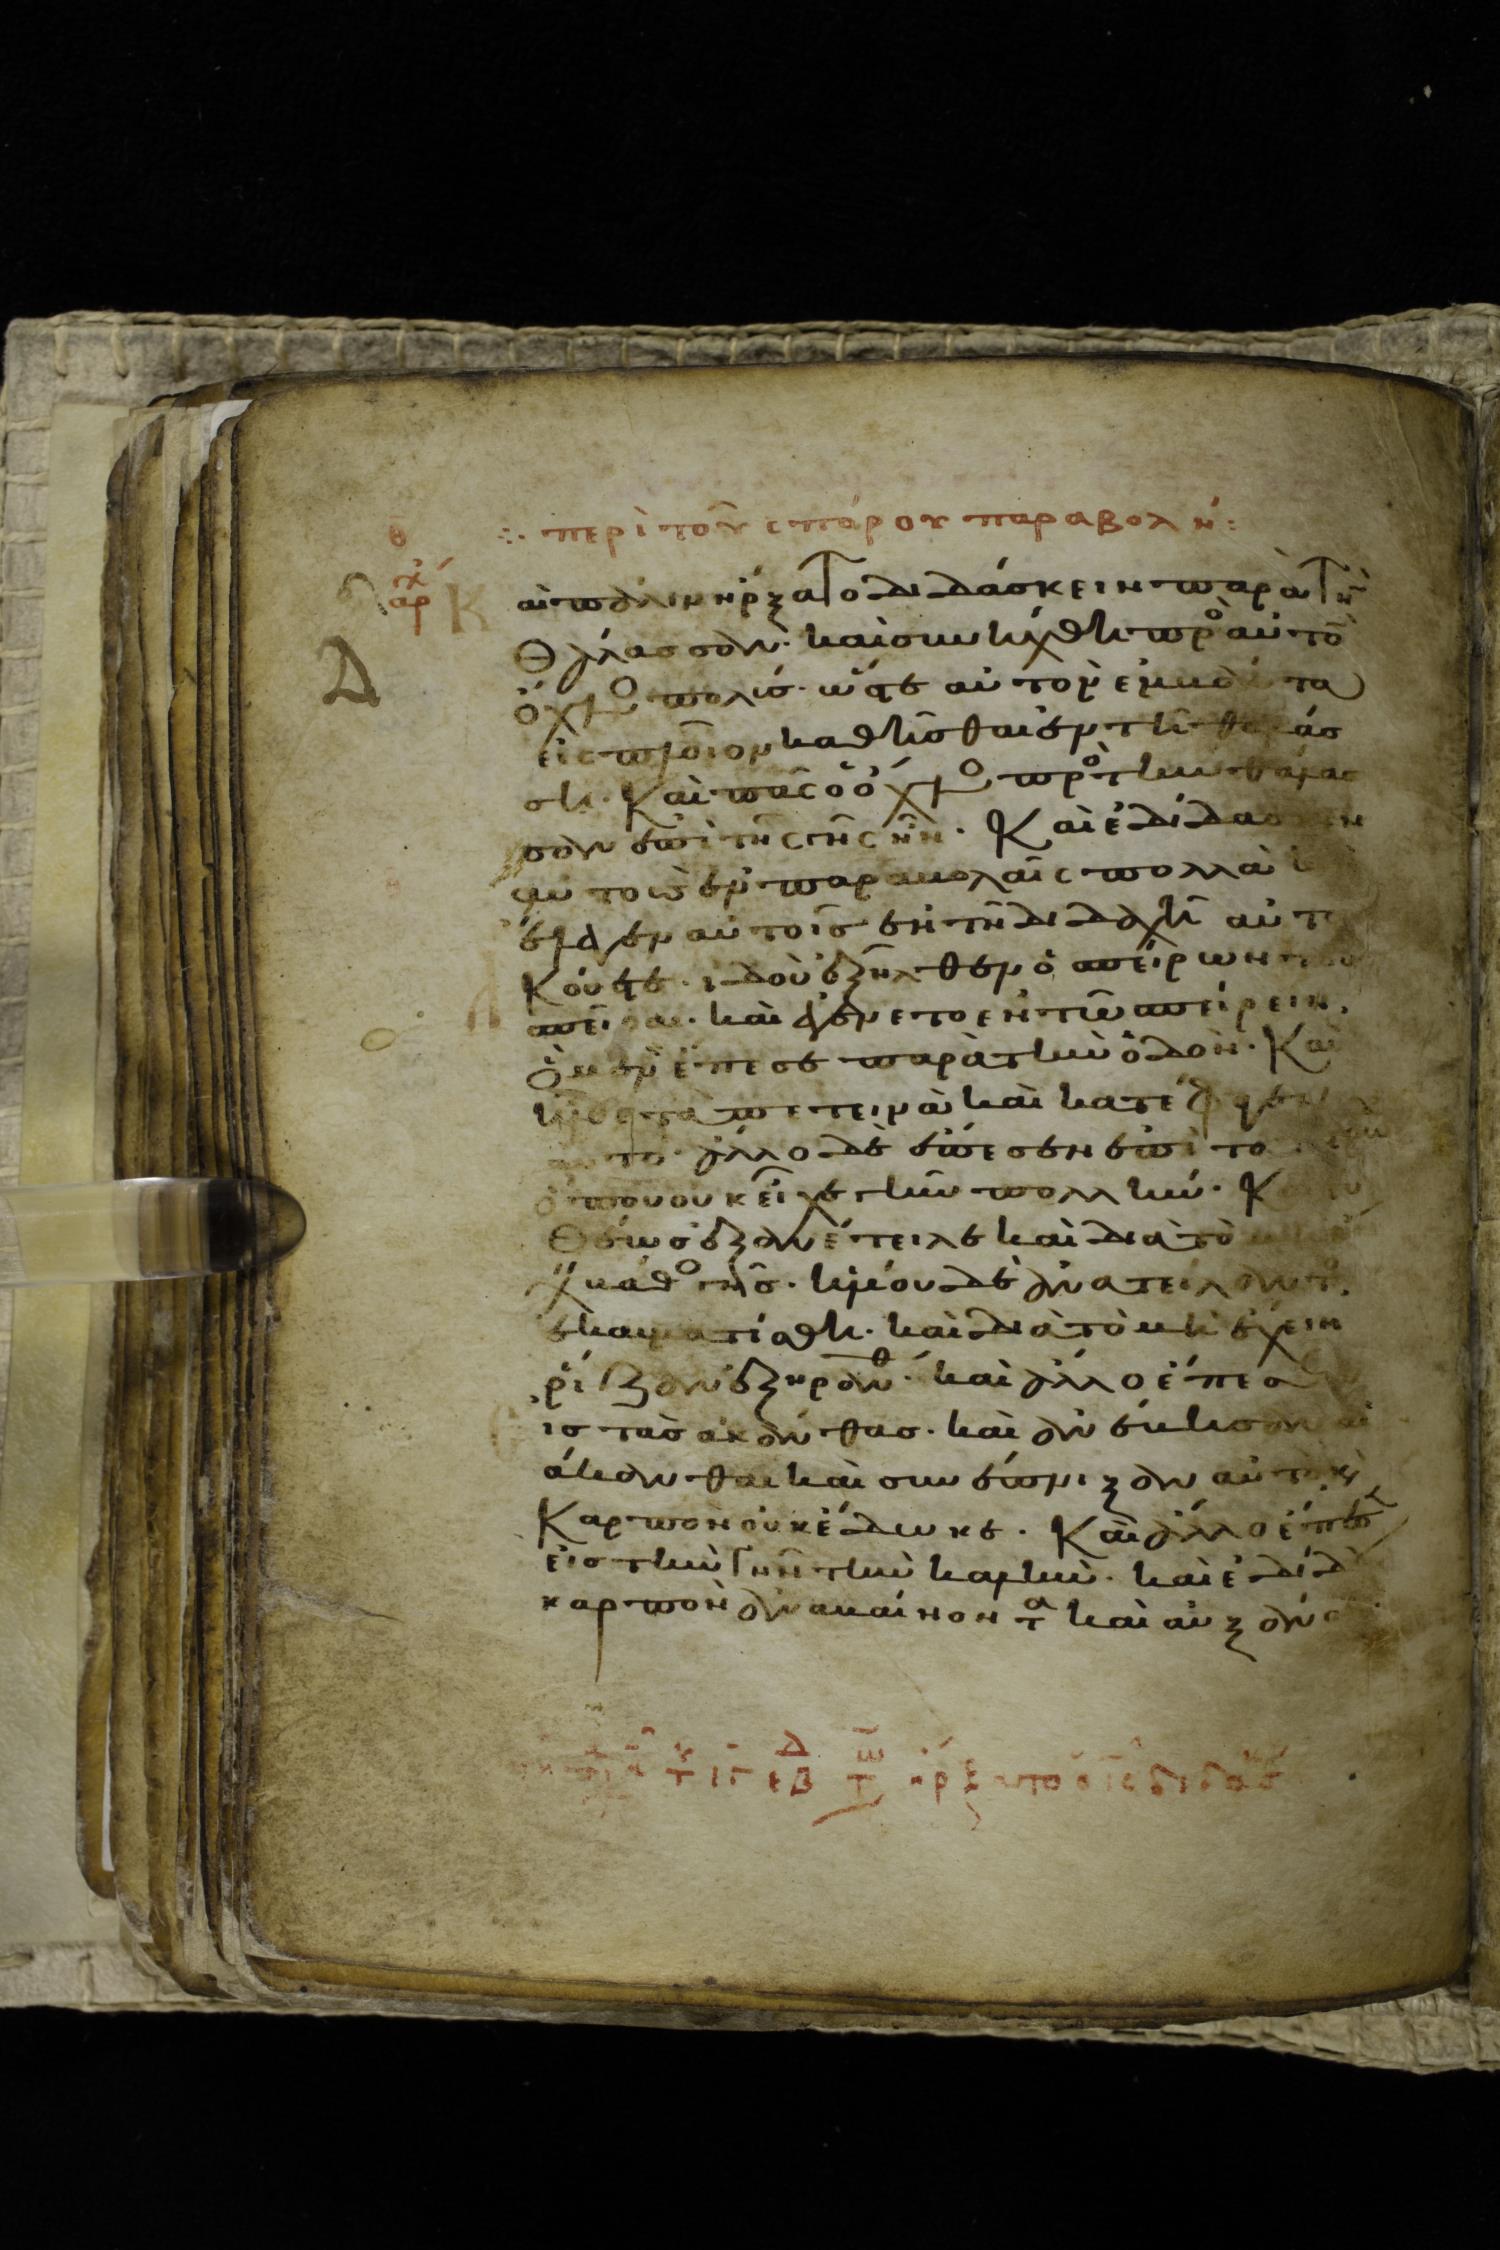 ∴ περὶ τοῦ σπόρου παραβολή:
θ
Καὶ πάλιν ἤρξατο διδάσκειν παρὰ τὴν
Δ
θάλασσαν· καὶ συνήχθη πρὸς αὐτὸ
ὄχλος πολύσ· ὥστε αὐτὸν ἐμβάντα
εἰς πλοῖον καθῆσθαι ἐν τῆ θαλάσ
ση. Καὶ πᾶς ὁ ὄχλος πρὸς τὴν θάλασ
σαν ἐπὶ τῆς γῆς ἦν. Καὶ ἐδίδασκεν
αὐτοὺς ἐν παραβολαῖς πολλὰ
ἔλεγεν αὐτοῖσ ἐν τῆ διδαχῆ αὐτ
κούετε. ἰδοὺ ἐξῆλθεν ὁ σπείρων τοῦ
σπεῖραι. καὶ ἐγένετο ἐν τῶ σπείρειν,
ὃ μὲν ἔπεσε παρὰ τὴν ὁδόν. Καὶ
ἦλθε τὰ πετεινὰ καὶ κατέφαγεν
αὐτό· ἄλλο δὲ ἔπεσεν ἐπὶ το
ὅπου οὐκ εἶχε γῆν πολλήν. Κ
θέωσ ἐξανέτειλε καὶ διὰ τὸ μὴ
βάθος γῆσ. ἡλίου δὲ ἀνατείλαντος,
ἐκαυματίσθη. καὶ διὰ τὸ μὴ ἔχειν
ῥίζαν ἐξηράνθ. καὶ ἄλλο ἔπεσ
εἰσ τὰσ ἀκάνθασ. καὶ ἀνέβησαν αἱ
ἄκανθαι καὶ συνέπνιξαν αὐτὸ κ
καρπὸν οὐκ ἔδωκε. Καὶ ἄλλο ἔπεσ
εἰσ τὴν γῆν τὴν καλήν. καὶ ἐδίδ
καρπὸν ἀναβαίνοντα καὶ αὐξάν